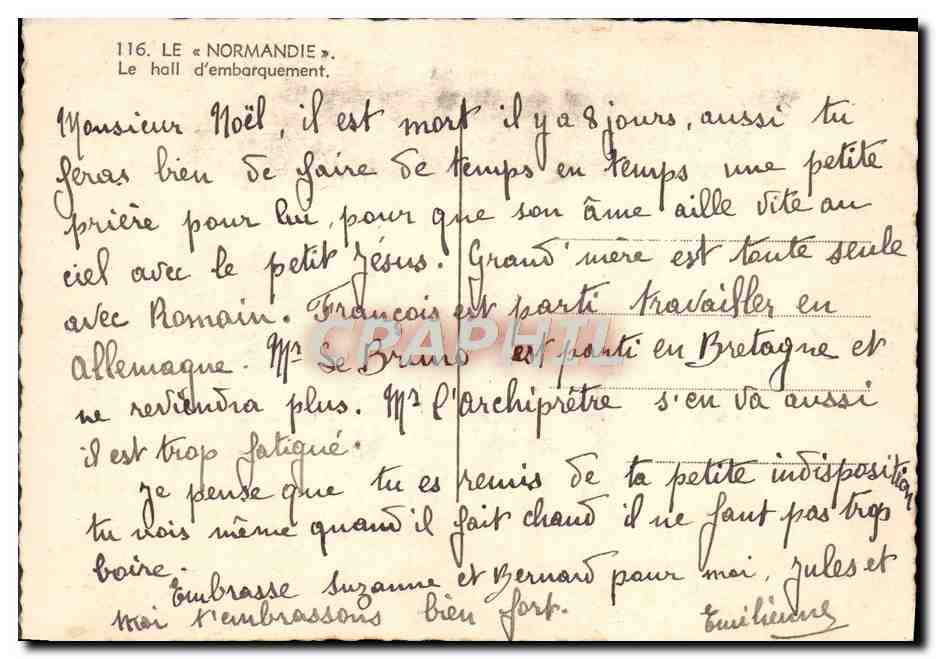 116. LE « NORMANDIE ».
Le hall d'embarquement.
Monsieur Noël, il est mort il y a 8 jours, aussi tu
feras bien de faire de temps en temps une petite
prière pour lui, pour que son âme aille vite au
ciel avec le petit Jésus. Grand'mère est toute seule
avec Romain. François est parti travailler en
Allemagne. Mr Le Bruno est parti en Bretagne et
ne reviendra plus. Mr l'archiprêtre s'en va aussi
il est trop fatigué.
Je pense que tu es remis de ta petite indisposition
tu vois même quand il fait chaud il ne faut pas trop
boire.
Embrasse Suzanne et Bernard pour moi, Jules et
moi t'embrassons bien fort. Emilienne
CPAPHIL